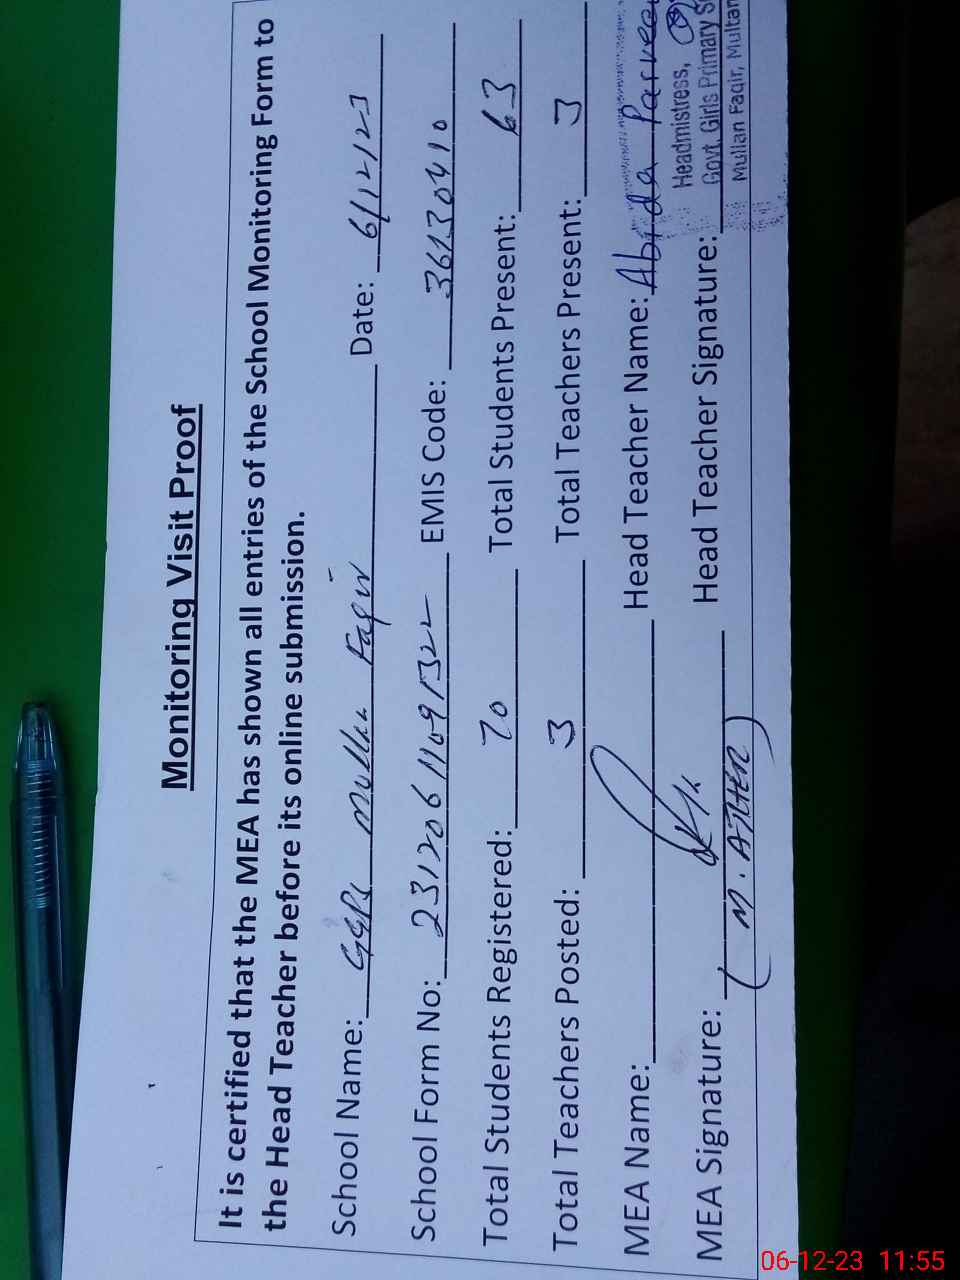 Monitoring Visit Proof
It is certified that the MEA has shown all entries of the School Monitoring Form to
the Head Teacher before its online submission.
School Name: GGPS Mullan Faqir Date: 6/12/23
School Form No: EMIS Code: 36130410
Total Students Registered: 70 Total Students Present: 63
Total Teachers Posted: 3 Total Teachers Present: 3
MEA Name: Head Teacher Name: Abida Parveen
MEA Signature: Head Teacher Signature:
(M. ATHER)
Headmistress,
Govt. Girls Primary
Mullan Faqir, Multan
06-12-23 11:55